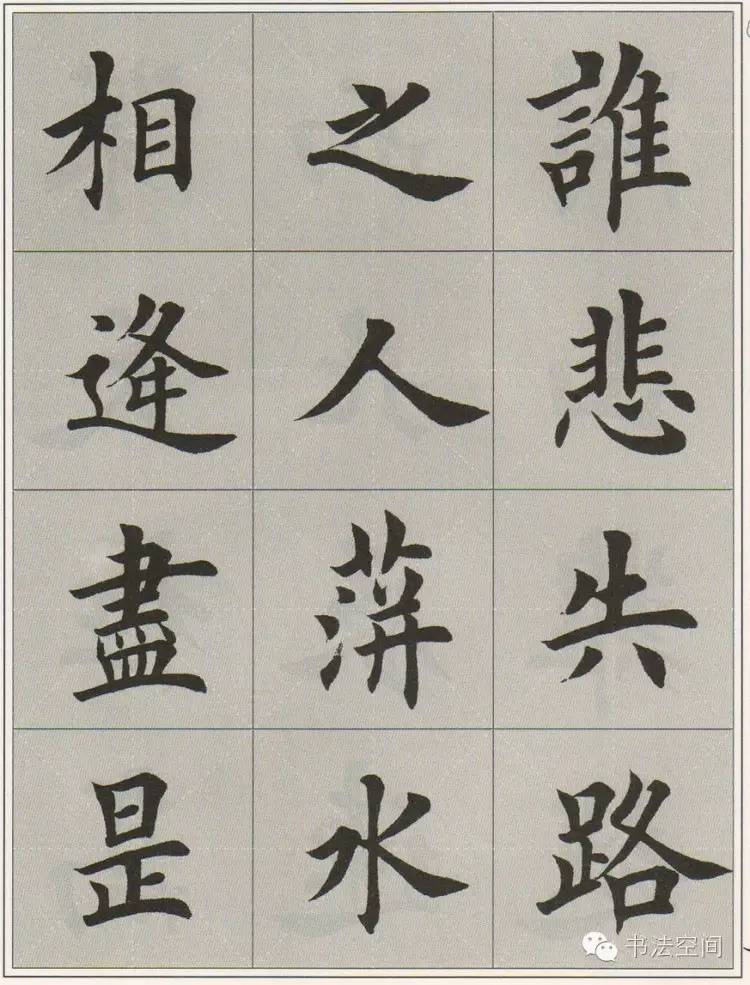 誰悲失路
之人萍水
相逢盡是
书法空间